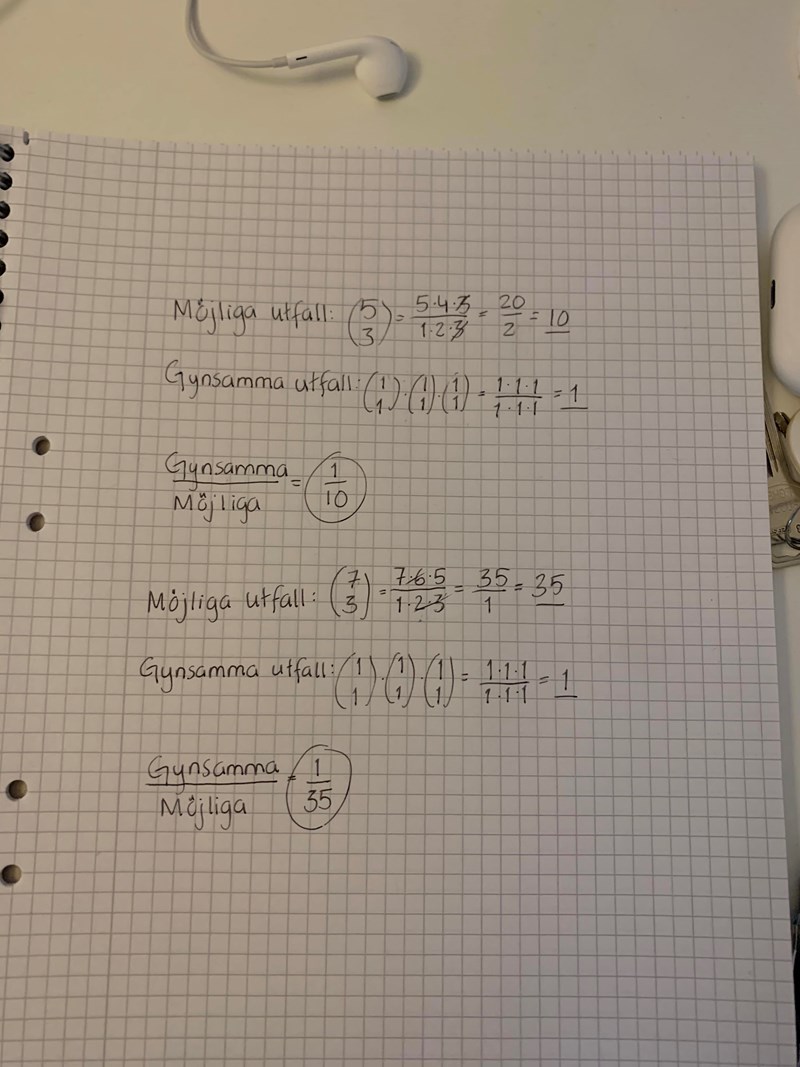 Möjliga utfall: (5 3) = 5·4·3 / 1·2·3 = 20/2 = 10
Gynsamma utfall: (1 1)·(1 1)·(1 1) = 1·1·1 / 1·1·1 = 1
Gynsamma / Möjliga = 1/10
Möjliga utfall: (7 3) = 7·6·5 / 1·2·3 = 35/1 = 35
Gynsamma utfall: (1 1)·(1 1)·(1 1) = 1·1·1 / 1·1·1 = 1
Gynsamma / Möjliga = 1/35